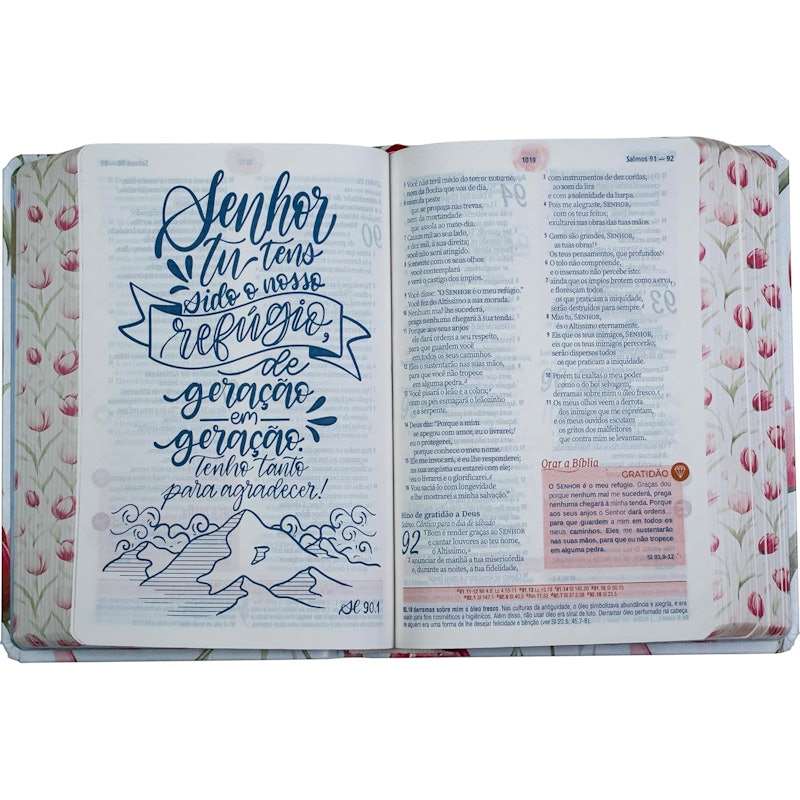 Senhor
tu tens
sido o nosso
refúgio,
de
geração
em
geração.
Tenho tanto
para agradecer!
Sl 90.1
1019
Salmos 91 — 92
5 Você não terá medo do terror noturno,
nem da flecha que voa de dia,
6 nem da peste
que se propaga nas trevas,
nem da mortandade
que assola ao meio-dia.
7 Caiam mil ao seu lado,
e dez mil, à sua direita;
você não será atingido.
8 Somente com os seus olhos
você contemplará
e verá o castigo dos ímpios.
9 Você disse: "O SENHOR é o meu refúgio."
Você fez do Altíssimo a sua morada.
10 Nenhum mal lhe sucederá,
praga nenhuma chegará à sua tenda.
11 Porque aos seus anjos
ele dará ordens a seu respeito,
para que guardem você
em todos os seus caminhos.
12 Eles o sustentarão nas suas mãos,
para que você não tropece
em alguma pedra.
13 Você pisará o leão e a cobra;
com os pés esmagará o leãozinho
e a serpente.
14 Deus diz: "Porque a mim
se apegou com amor, eu o livrarei;
eu o protegerei,
porque conhece o meu nome.
15 Ele me invocará, e eu lhe responderei;
na sua angústia eu estarei com ele;
eu o livrarei e o glorificarei.
16 Vou saciá-lo com longevidade
e lhe mostrarei a minha salvação."
Hino de gratidão a Deus
Salmo. Cântico para o dia de sábado
92 1 Bom é render graças ao SENHOR
e cantar louvores ao teu nome,
ó Altíssimo,
2 anunciar de manhã a tua misericórdia
e, durante as noites, a tua fidelidade,
3 com instrumentos de dez cordas,
ao som da lira
e com a solenidade da harpa.
4 Pois me alegraste, SENHOR,
com os teus feitos;
exultarei nas obras das tuas mãos.
5 Como são grandes, SENHOR,
as tuas obras!
Os teus pensamentos, que profundos!
6 O tolo não compreende,
e o insensato não percebe isto:
7 ainda que os ímpios brotem como a erva,
e floresçam todos
os que praticam a iniquidade,
serão destruídos para sempre.
8 Mas tu, SENHOR,
és o Altíssimo eternamente.
9 Eis que os teus inimigos, SENHOR,
eis que os teus inimigos perecerão;
serão dispersos todos
os que praticam a iniquidade.
10 Porém tu exaltas o meu poder
como o do boi selvagem;
derramas sobre mim o óleo fresco.
11 Os meus olhos veem a derrota
dos inimigos que me espreitam,
e os meus ouvidos escutam
os gritos dos malfeitores
que contra mim se levantam.
Orar a Bíblia
GRATIDÃO
O SENHOR é o meu refúgio. Graças dou
porque nenhum mal me sucederá, praga
nenhuma chegará à minha tenda. Porque
aos seus anjos o Senhor dará ordens...
para que guardem a mim em todos os
meus caminhos. Eles me sustentarão
nas suas mãos, para que eu não tropece
em alguma pedra.
Sl 91.9-12
92.10 derramas sobre mim o óleo fresco. Nas culturas da antiguidade, o óleo simbolizava abundância e alegria, e era
usado para fins cosméticos e higiênicos. Além disso, não usar óleo era sinal de luto. Derramar óleo perfumado na cabeça
de alguém era uma forma de lhe desejar felicidade e bênção (ver Sl 23.5; 45.7-8).